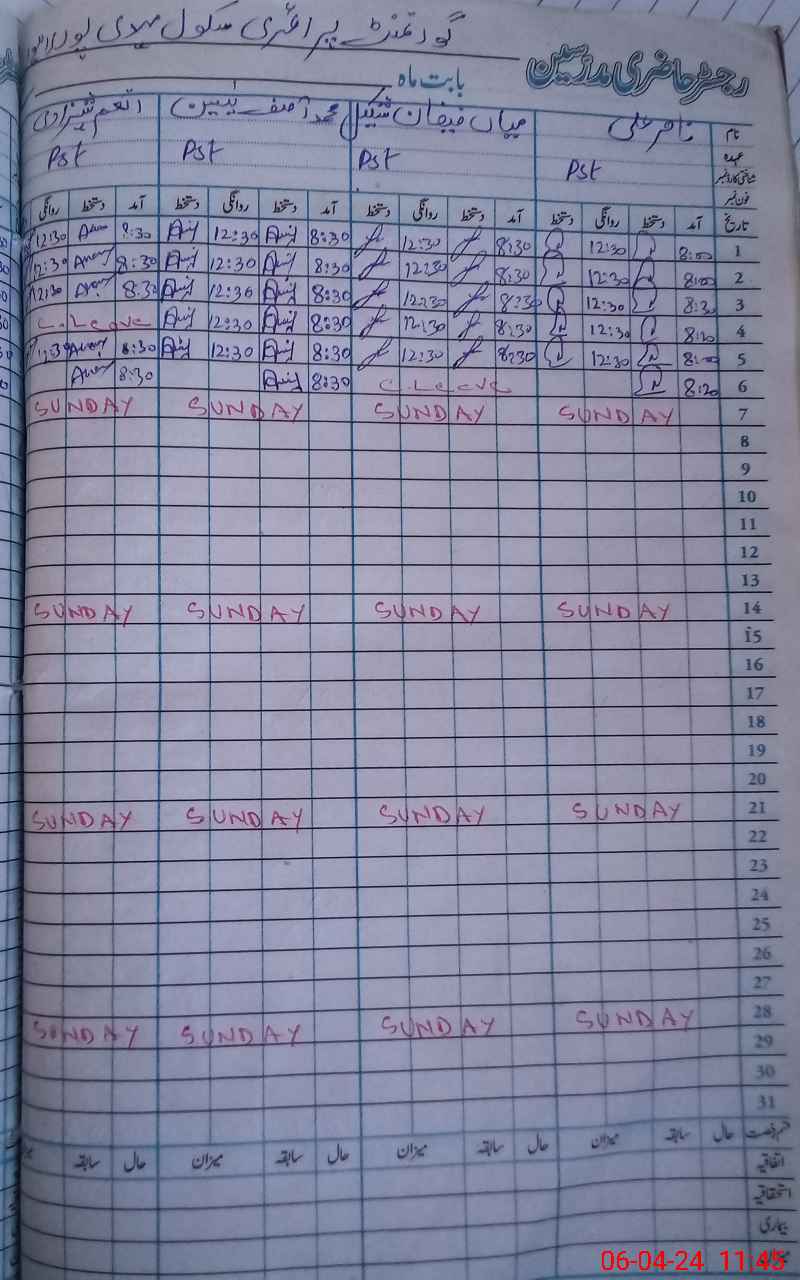 گورنمنٹ پرائمری سکول
رجسٹر حاضری مدرسین
بابت ماہ
نام ناصر علی میاں فیضان شکیل محمد آصف یٰسین انعم شہزادی
عہدہ Pst Pst Pst Pst
شناختی کارڈ نمبر
فون نمبر
تاریخ آمد دستخط روانگی دستخط آمد دستخط روانگی دستخط آمد دستخط روانگی دستخط آمد دستخط روانگی
1 8:00 12:30 8:30 12:30 8:30 12:30 8:30 12:30
2 8:00 12:30 8:30 12:30 8:30 12:30 8:30 12:30
3 8:30 12:30 8:30 12:30 8:30 12:30 8:30 12:30
4 8:20 12:30 8:30 12:30 8:30 12:30 C.Leave
5 8:00 12:30 8:30 12:30 8:30 12:30 8:30 12:30
6 8:20 C.Leave 8:30 8:30
7 SUNDAY SUNDAY SUNDAY SUNDAY
8
9
10
11
12
13
14 SUNDAY SUNDAY SUNDAY SUNDAY
15
16
17
18
19
20
21 SUNDAY SUNDAY SUNDAY SUNDAY
22
23
24
25
26
27
28 SUNDAY SUNDAY SUNDAY SUNDAY
29
30
31
قسم رخصت حال سابقہ میزان حال سابقہ میزان حال سابقہ میزان حال سابقہ
اتفاقیہ
استحقاقیہ
بیماری
06-04-24 11:45